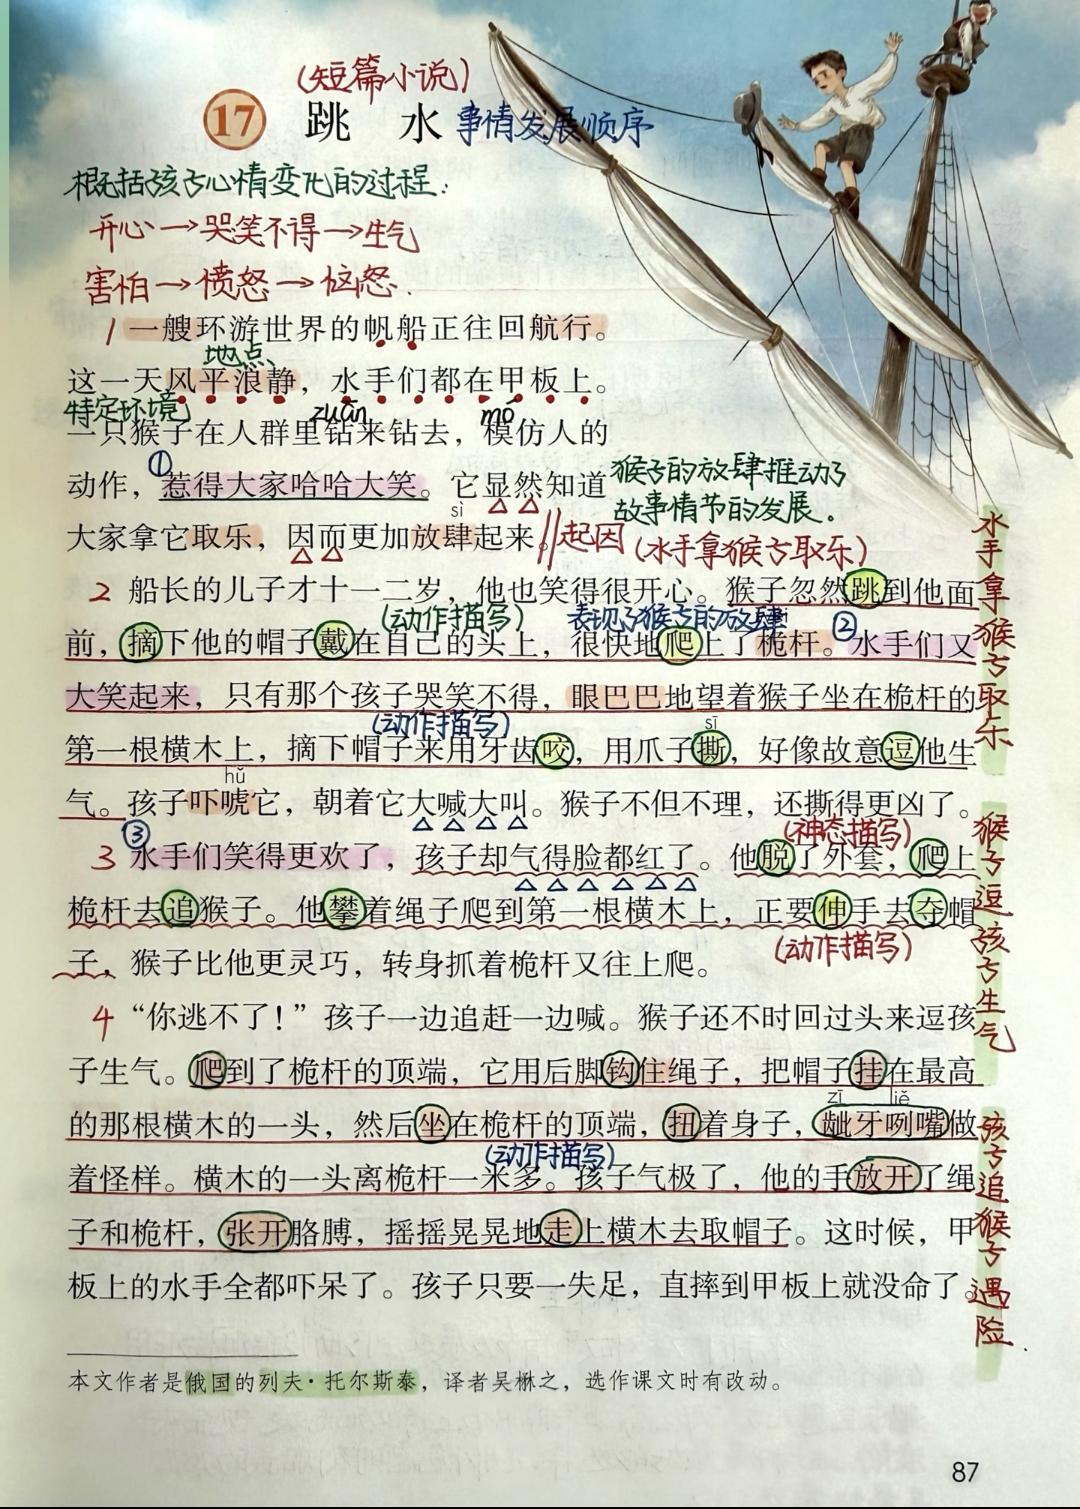 (短篇小说)
17 跳水 事情发展顺序
概括孩子心情变化的过程:
开心→哭笑不得→生气
害怕→愤怒→恼怒.
1 一艘环游世界的帆船正往回航行。
地点、
这一天风平浪静，水手们都在甲板上。
特定环境 zuān mó
一只猴子在人群里钻来钻去，模仿人的
动作，①惹得大家哈哈大笑。它显然知道
猴子的放肆推动了
故事情节的发展。
sì
大家拿它取乐，因而更加放肆起来。∥起因(水手拿猴子取乐)
2 船长的儿子才十一二岁，他也笑得很开心。猴子忽然跳到他面
(动作描写) 表现了猴子的放肆
前，摘下他的帽子戴在自己的头上，很快地爬上了桅杆。②水手们又
大笑起来，只有那个孩子哭笑不得，眼巴巴地望着猴子坐在桅杆的
(动作描写) sī
第一根横木上，摘下帽子来用牙齿咬，用爪子撕，好像故意逗他生
hǔ
气。孩子吓唬它，朝着它大喊大叫。猴子不但不理，还撕得更凶了。
(神态描写)
3 ③水手们笑得更欢了，孩子却气得脸都红了。他脱了外套，爬上
桅杆去追猴子。他攀着绳子爬到第一根横木上，正要伸手去夺帽
(动作描写)
子，猴子比他更灵巧，转身抓着桅杆又往上爬。
4 “你逃不了！”孩子一边追赶一边喊。猴子还不时回过头来逗孩
子生气。爬到了桅杆的顶端，它用后脚钩住绳子，把帽子挂在最高
zī liě
的那根横木的一头，然后坐在桅杆的顶端，扭着身子，龇牙咧嘴做
(动作描写)
着怪样。横木的一头离桅杆一米多。孩子气极了，他的手放开了绳
子和桅杆，张开胳膊，摇摇晃晃地走上横木去取帽子。这时候，甲
板上的水手全都吓呆了。孩子只要一失足，直摔到甲板上就没命了。
水手拿猴子取乐
猴子逗孩子生气
孩子追猴子遇险
本文作者是俄国的列夫·托尔斯泰，译者吴楙之，选作课文时有改动。
87